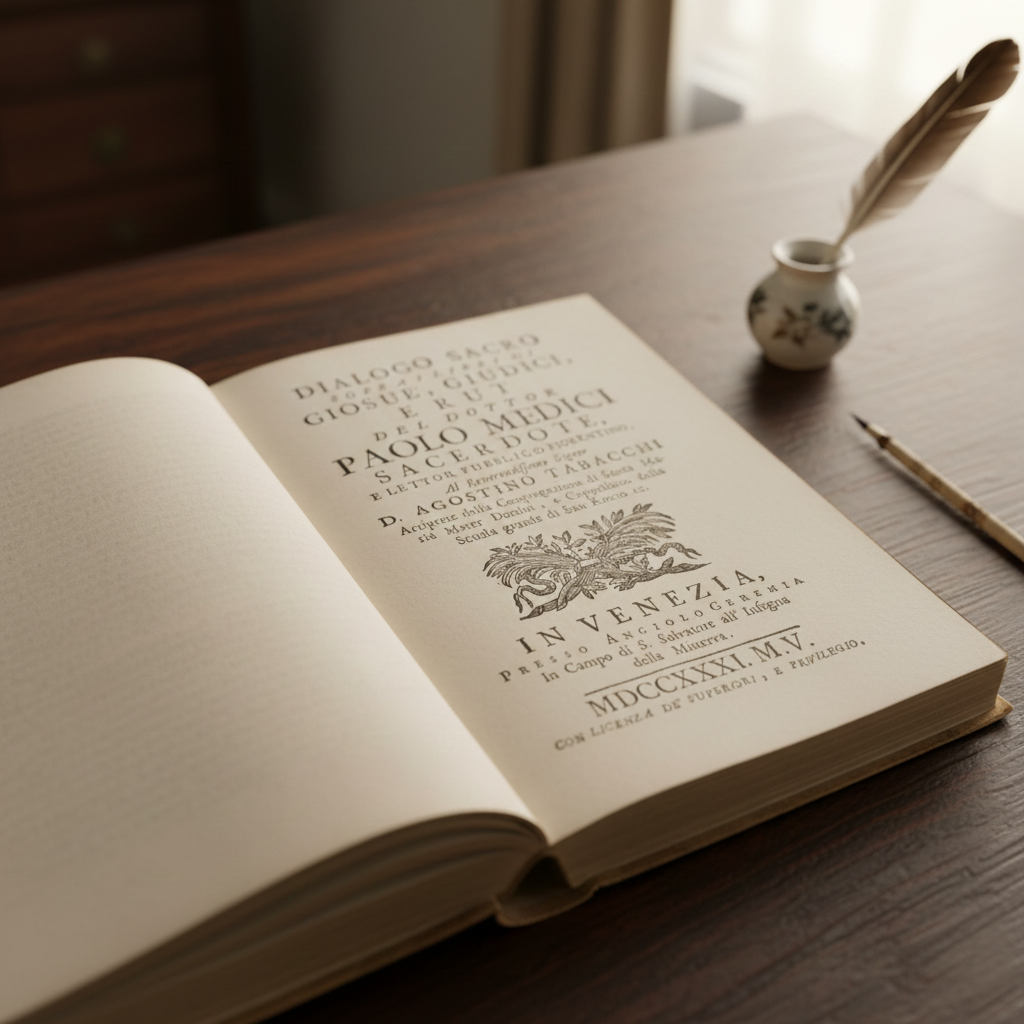 DIALOGO SACRO
SOPRA I LIBRI DI
GIOSUE, GIUDICI,
E RUT
DEL DOTTOR
PAOLO MEDICI
SACERDOTE,
E LETTOR PUBBLICO FIORENTINO.
Al Reverendissimo Signor
D. AGOSTINO TABACCHI
Arciprete della Congregazione di Santa Ma-
Mater Domini, e Cappellano della
Scuola grande di San Rocco ec.
IN VENEZIA,
PRESSO ANGIOLO GEREMIA
In Campo di S. Salvatore all' Insegna
della Minerva.
MDCCXXXI. M.V.
CON LICENZA DE' SUPERIORI, E PRIVILEGIO.